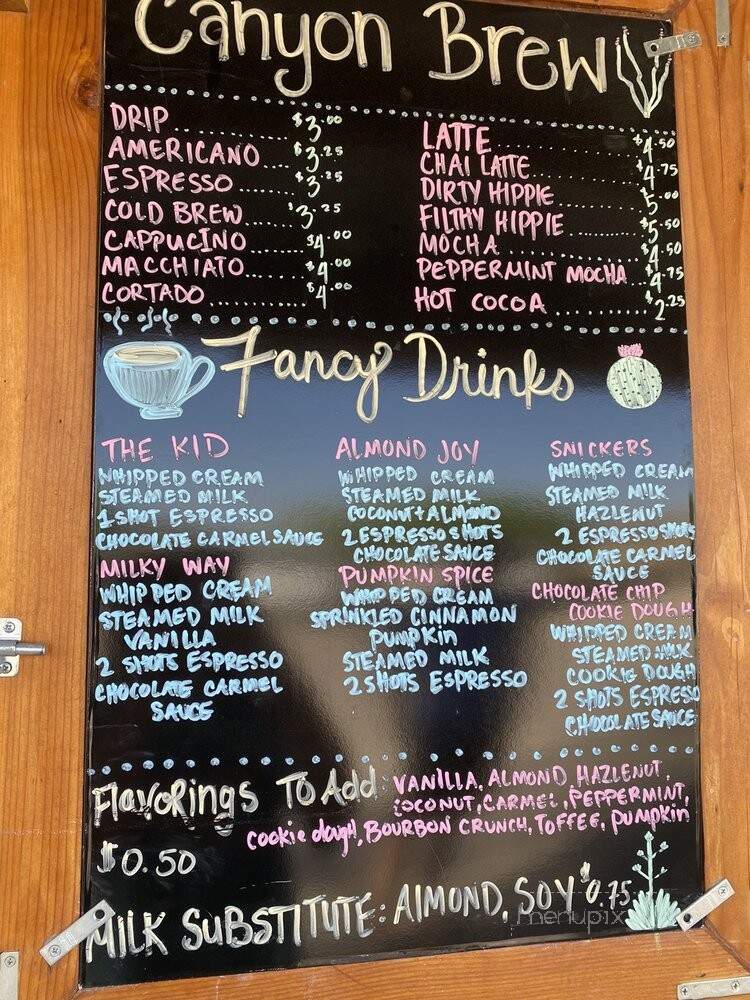 Canyon Brew
DRIP $3.00
AMERICANO $3.25
ESPRESSO $3.25
COLD BREW $3.25
CAPPUCINO $4.00
MACCHIATO $4.00
CORTADO $4.00
LATTE $4.50
CHAI LATTE $4.75
DIRTY HIPPIE $5.00
FILTHY HIPPIE $5.50
MOCHA $4.50
PEPPERMINT MOCHA $4.75
HOT COCOA $2.25
Fancy Drinks
THE KID
WHIPPED CREAM
STEAMED MILK
1 SHOT ESPRESSO
CHOCOLATE CARMEL SAUCE
MILKY WAY
WHIPPED CREAM
STEAMED MILK
VANILLA
2 SHOTS ESPRESSO
CHOCOLATE CARMEL
SAUCE
ALMOND JOY
WHIPPED CREAM
STEAMED MILK
COCONUT + ALMOND
2 ESPRESSO SHOTS
CHOCOLATE SAUCE
PUMPKIN SPICE
WHIPPED CREAM
SPRINKLED CINNAMON
PUMPKIN
STEAMED MILK
2 SHOTS ESPRESSO
SNICKERS
WHIPPED CREAM
STEAMED MILK
HAZLENUT
2 ESPRESSO SHOTS
CHOCOLATE CARMEL
SAUCE
CHOCOLATE CHIP
COOKIE DOUGH
WHIPPED CREAM
STEAMED MILK
COOKIE DOUGH
2 SHOTS ESPRESSO
CHOCOLATE SAUCE
Flavorings To Add: VANILLA, ALMOND, HAZLENUT,
COCONUT, CARMEL, PEPPERMINT,
cookie dough, BOURBON CRUNCH, TOFFEE, PUMPKIN
$0.50
MILK SUBSTITUTE: ALMOND, SOY $0.75
menupix